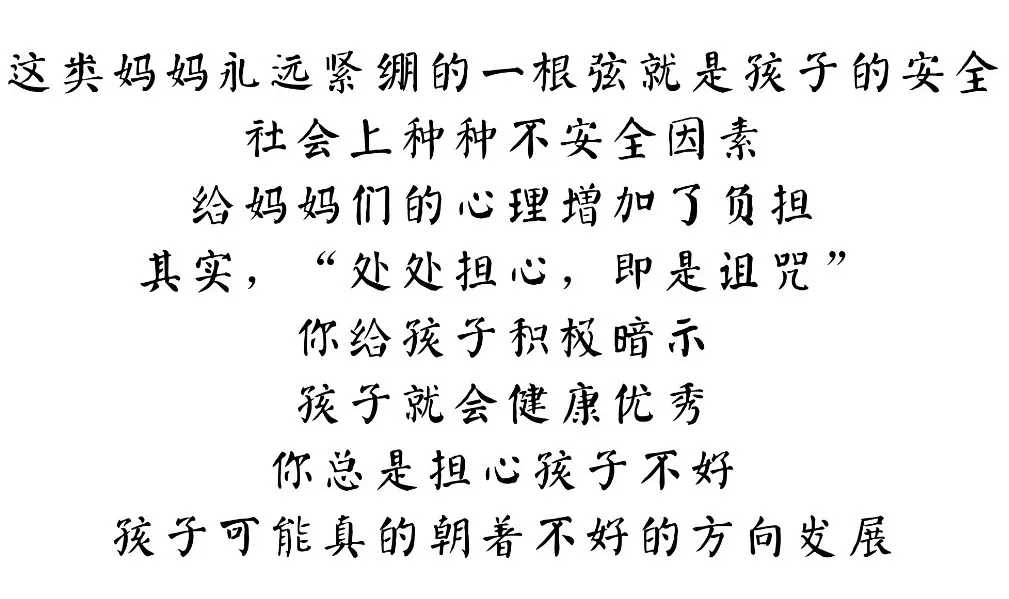 这类妈妈永远紧绷的一根弦就是孩子的安全
社会上种种不安全因素
给妈妈们的心理增加了负担
其实，“处处担心，即是诅咒”
你给孩子积极暗示
孩子就会健康优秀
你总是担心孩子不好
孩子可能真的朝着不好的方向发展